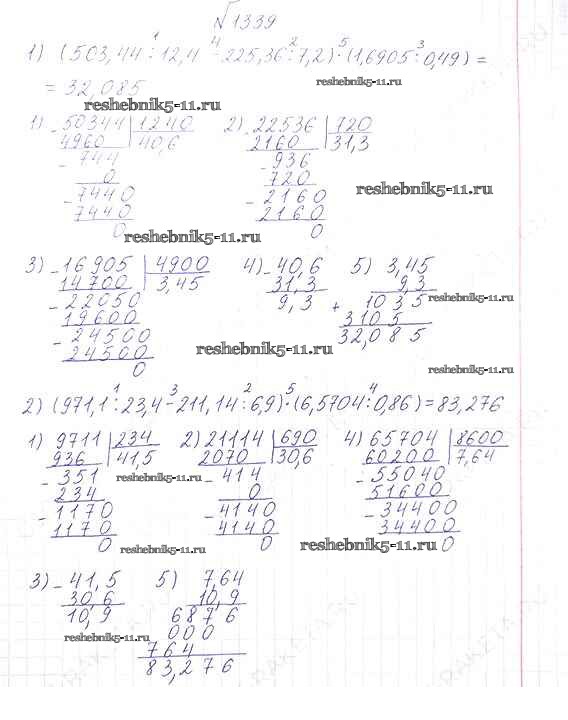 √1339
1) (503,44 : 12,4 - 225,36 : 7,2) · (1,6905 : 0,49) =
= 32,085
reshebnik5-11.ru
reshebnik5-11.ru
1) - 50344 | 1240 2) - 22536 | 720
4960 40,6 2160 31,3
- 744 - 936
0 720
- 7440 - 2160
7440 2160
0 0
reshebnik5-11.ru
reshebnik5-11.ru
3) - 16905 | 4900 4) - 40,6 5) 3,45
14700 3,45 31,3 9,3
- 22050 9,3 + 1035
19600 3105
- 24500 32,085
24500
0
reshebnik5-11.ru
reshebnik5-11.ru
reshebnik5-11.ru
2) (971,1 : 23,4 - 211,14 : 6,9) · (6,5704 : 0,86) = 83,276
1) 9711 | 234 2) 21114 | 690 4) 65704 | 8600
936 41,5 2070 30,6 60200 7,64
- 351 - 414 - 55040
234 0 51600
- 1170 - 4140 - 34400
1170 4140 34400
0 0 0
reshebnik5-11.ru
reshebnik5-11.ru
reshebnik5-11.ru
3) - 41,5 5) 7,64
30,6 10,9
10,9 6876
000
764
83,276
reshebnik5-11.ru
reshebnik5-11.ru